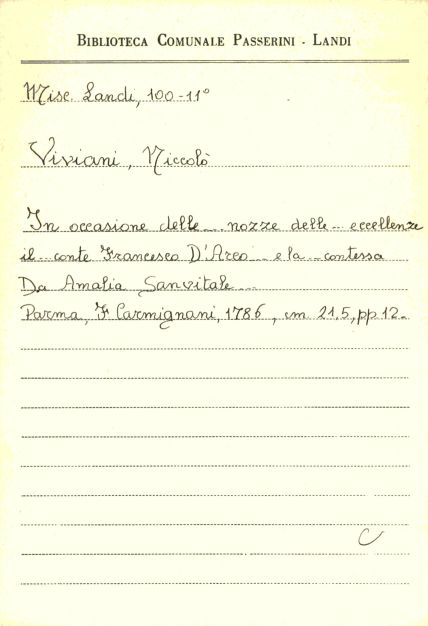 BIBLIOTECA COMUNALE PASSERINI - LANDI
Misc. Landi, 100-11°
Viviani, Niccolò
In occasione delle... nozze delle... eccellenze
il... conte Francesco D'Arco... e la... contessa
Da Amalia Sanvitale...
Parma, F Carmignani, 1786, cm 21,5, pp 12.
C